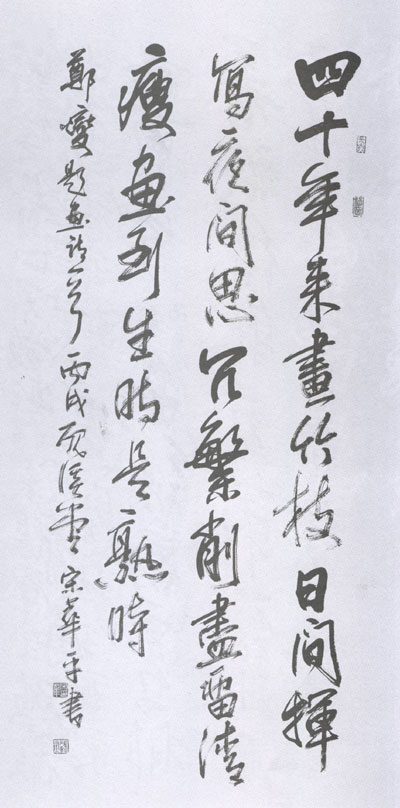 四十年来畫竹枝日間揮
寫夜間思冗繁削盡留清
瘦画到生時是熟時
鄭燮題画詩一首丙戌 宗華平書